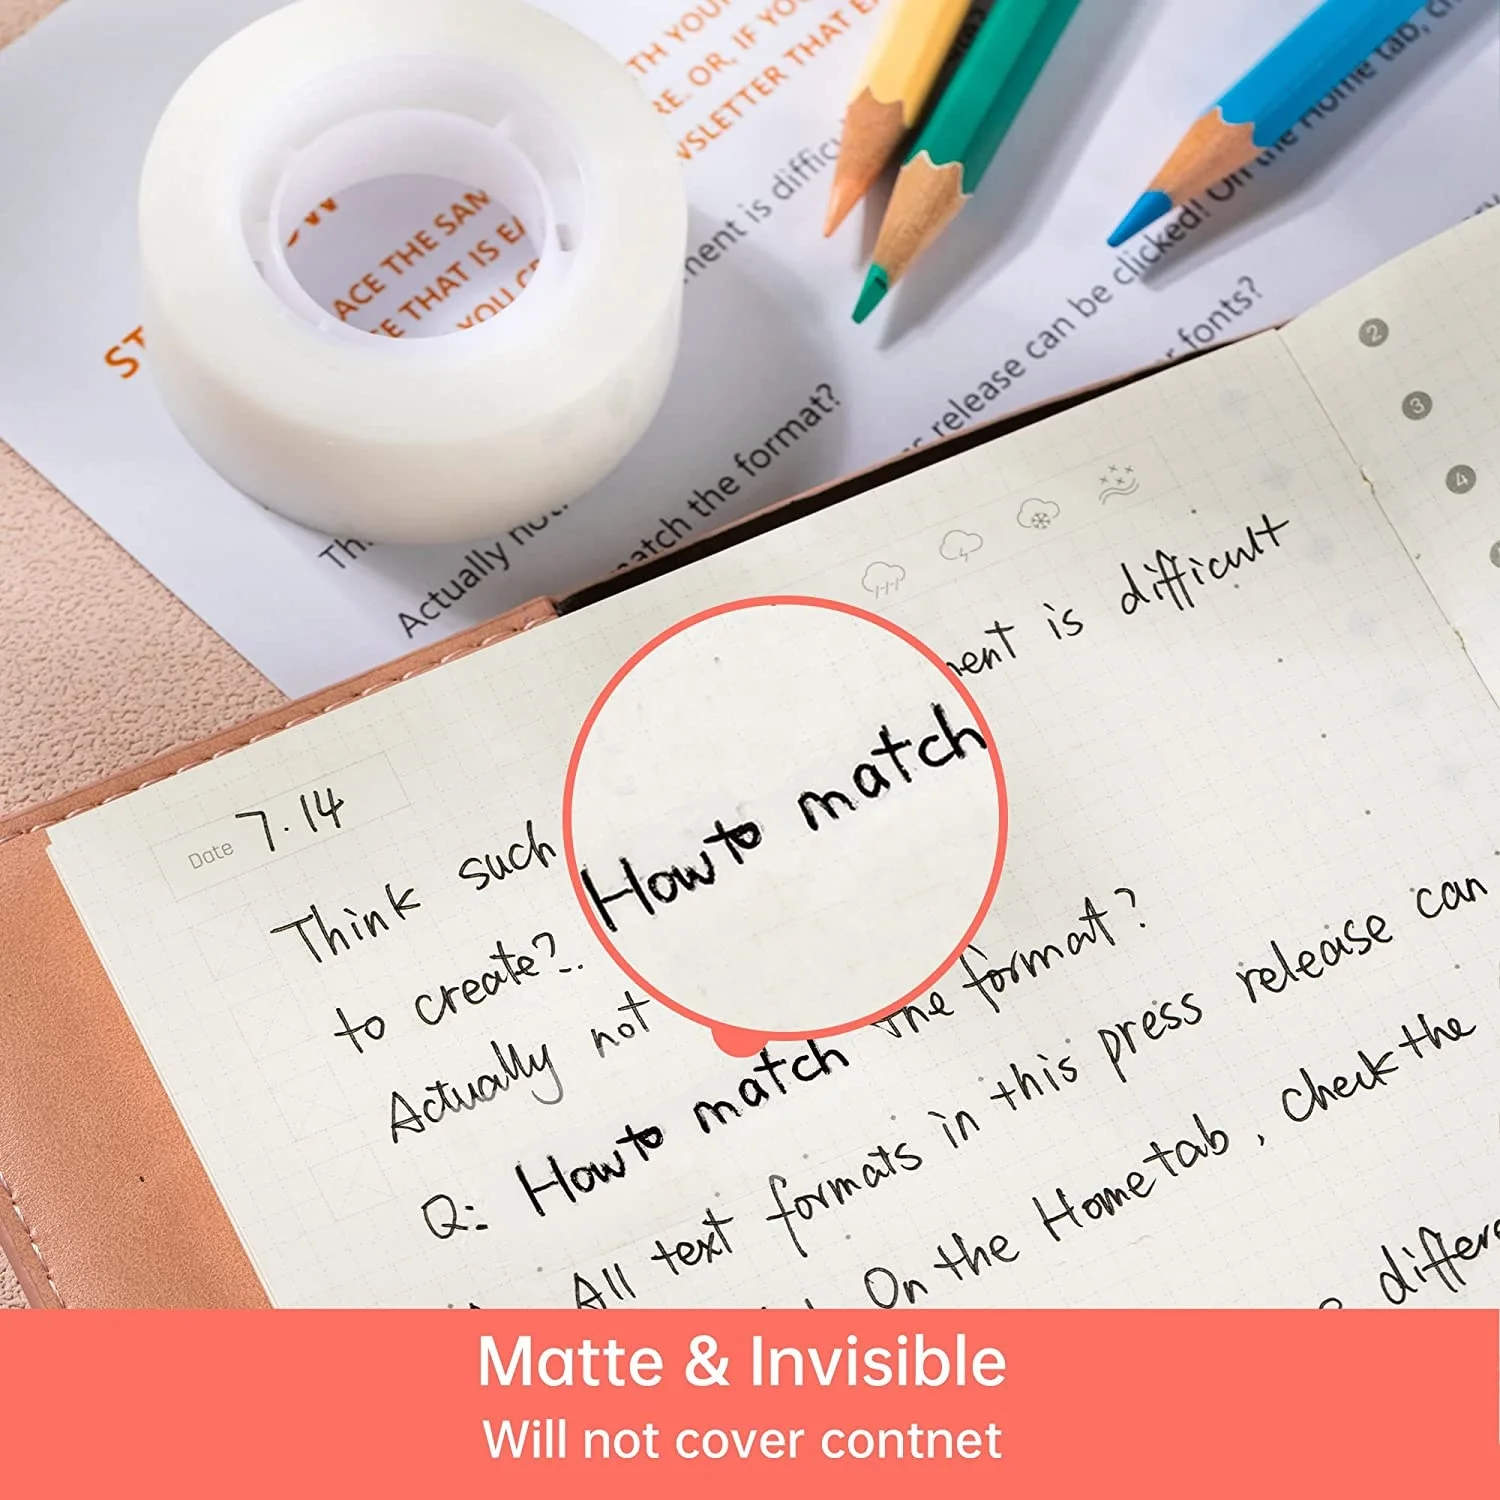 TH YOUR
RE. OR, IF YOU
WSLETTER THAT EA
ACE THE SAN
E THAT IS EA
YOU C
ST
ment is difficu
On the Home tab, ch
release can be clicked!
r fonts?
match the format?
Th
Actually not
2
3
4
Date 7.14
Think such
ment is difficult
to create?
How to match
Actually not
the format?
Q: How to match
All text formats in this press release can
On the Home tab, check the
differ
Matte & Invisible
Will not cover contnet